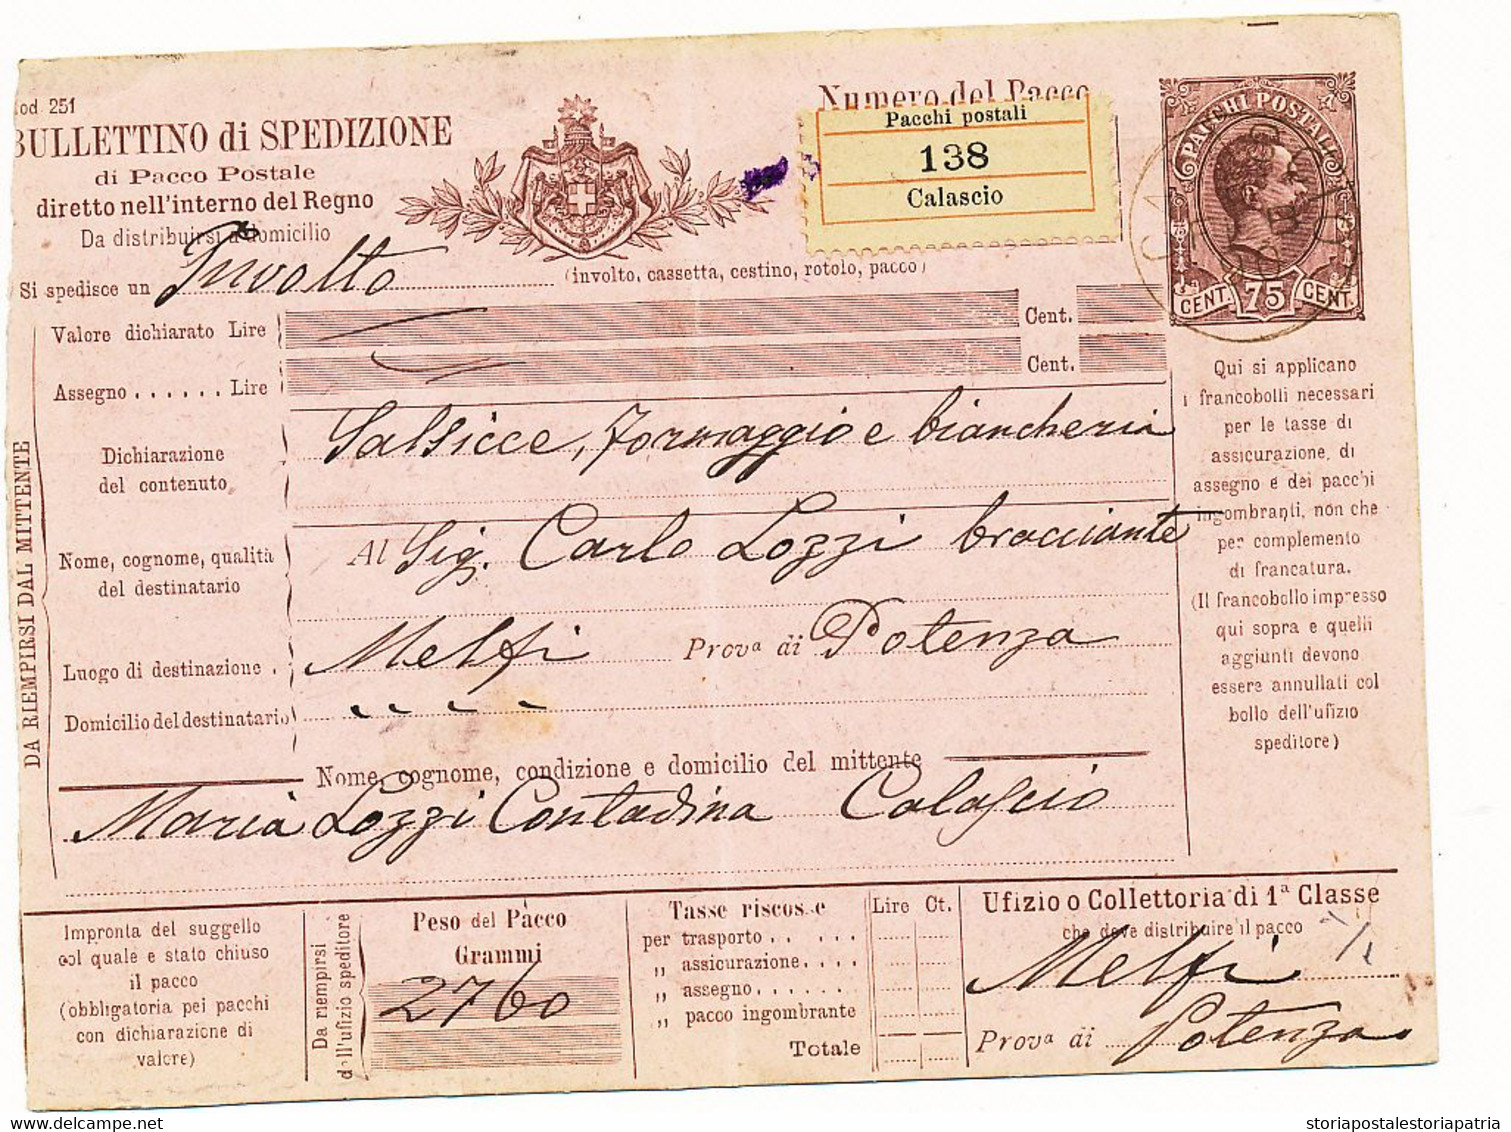 od. 251
BULLETTINO di SPEDIZIONE
di Pacco Postale
diretto nell'interno del Regno
Da distribuirsi a domicilio
Numero del Pacco
Pacchi postali
138
Calascio
PACCHI POSTALI
CENT. 75 CENT.
Si spedisce un Involto (involto, cassetta, cestino, rotolo, pacco)
Valore dichiarato Lire Cent.
Assegno . . . . . . Lire Cent.
DA RIEMPIRSI DAL MITTENTE
Dichiarazione
del contenuto
Salsicce, Formaggio e biancheria
Nome, cognome, qualità
del destinatario
Al Sig. Carlo Lozzi bracciante
Luogo di destinazione . Melfi Prova di Potenza
Domicilio del destinatario
Nome, cognome, condizione e domicilio del mittente
Maria Lozzi Contadina Calascio
Qui si applicano
i francobolli necessari
per le tasse di
assicurazione, di
assegno e dei pacchi
ingombranti, non che
per complemento
di francatura.
(Il francobollo impresso
qui sopra e quelli
aggiunti devono
essere annullati col
bollo dell'ufizio
speditore)
Impronta del suggello
col quale è stato chiuso
il pacco
(obbligatoria pei pacchi
con dichiarazione di
valore)
Da riempirsi
dall'ufizio speditore
Peso del Pacco
Grammi
2760
Tasse riscosse Lire Ct.
per trasporto . . . . .
„ assicurazione. . . .
„ assegno . . . . . . .
„ pacco ingombrante
Totale
Ufizio o Collettoria di 1a Classe
che deve distribuire il pacco
Melfi
Prova di Potenza
storiapostalestoriapatria